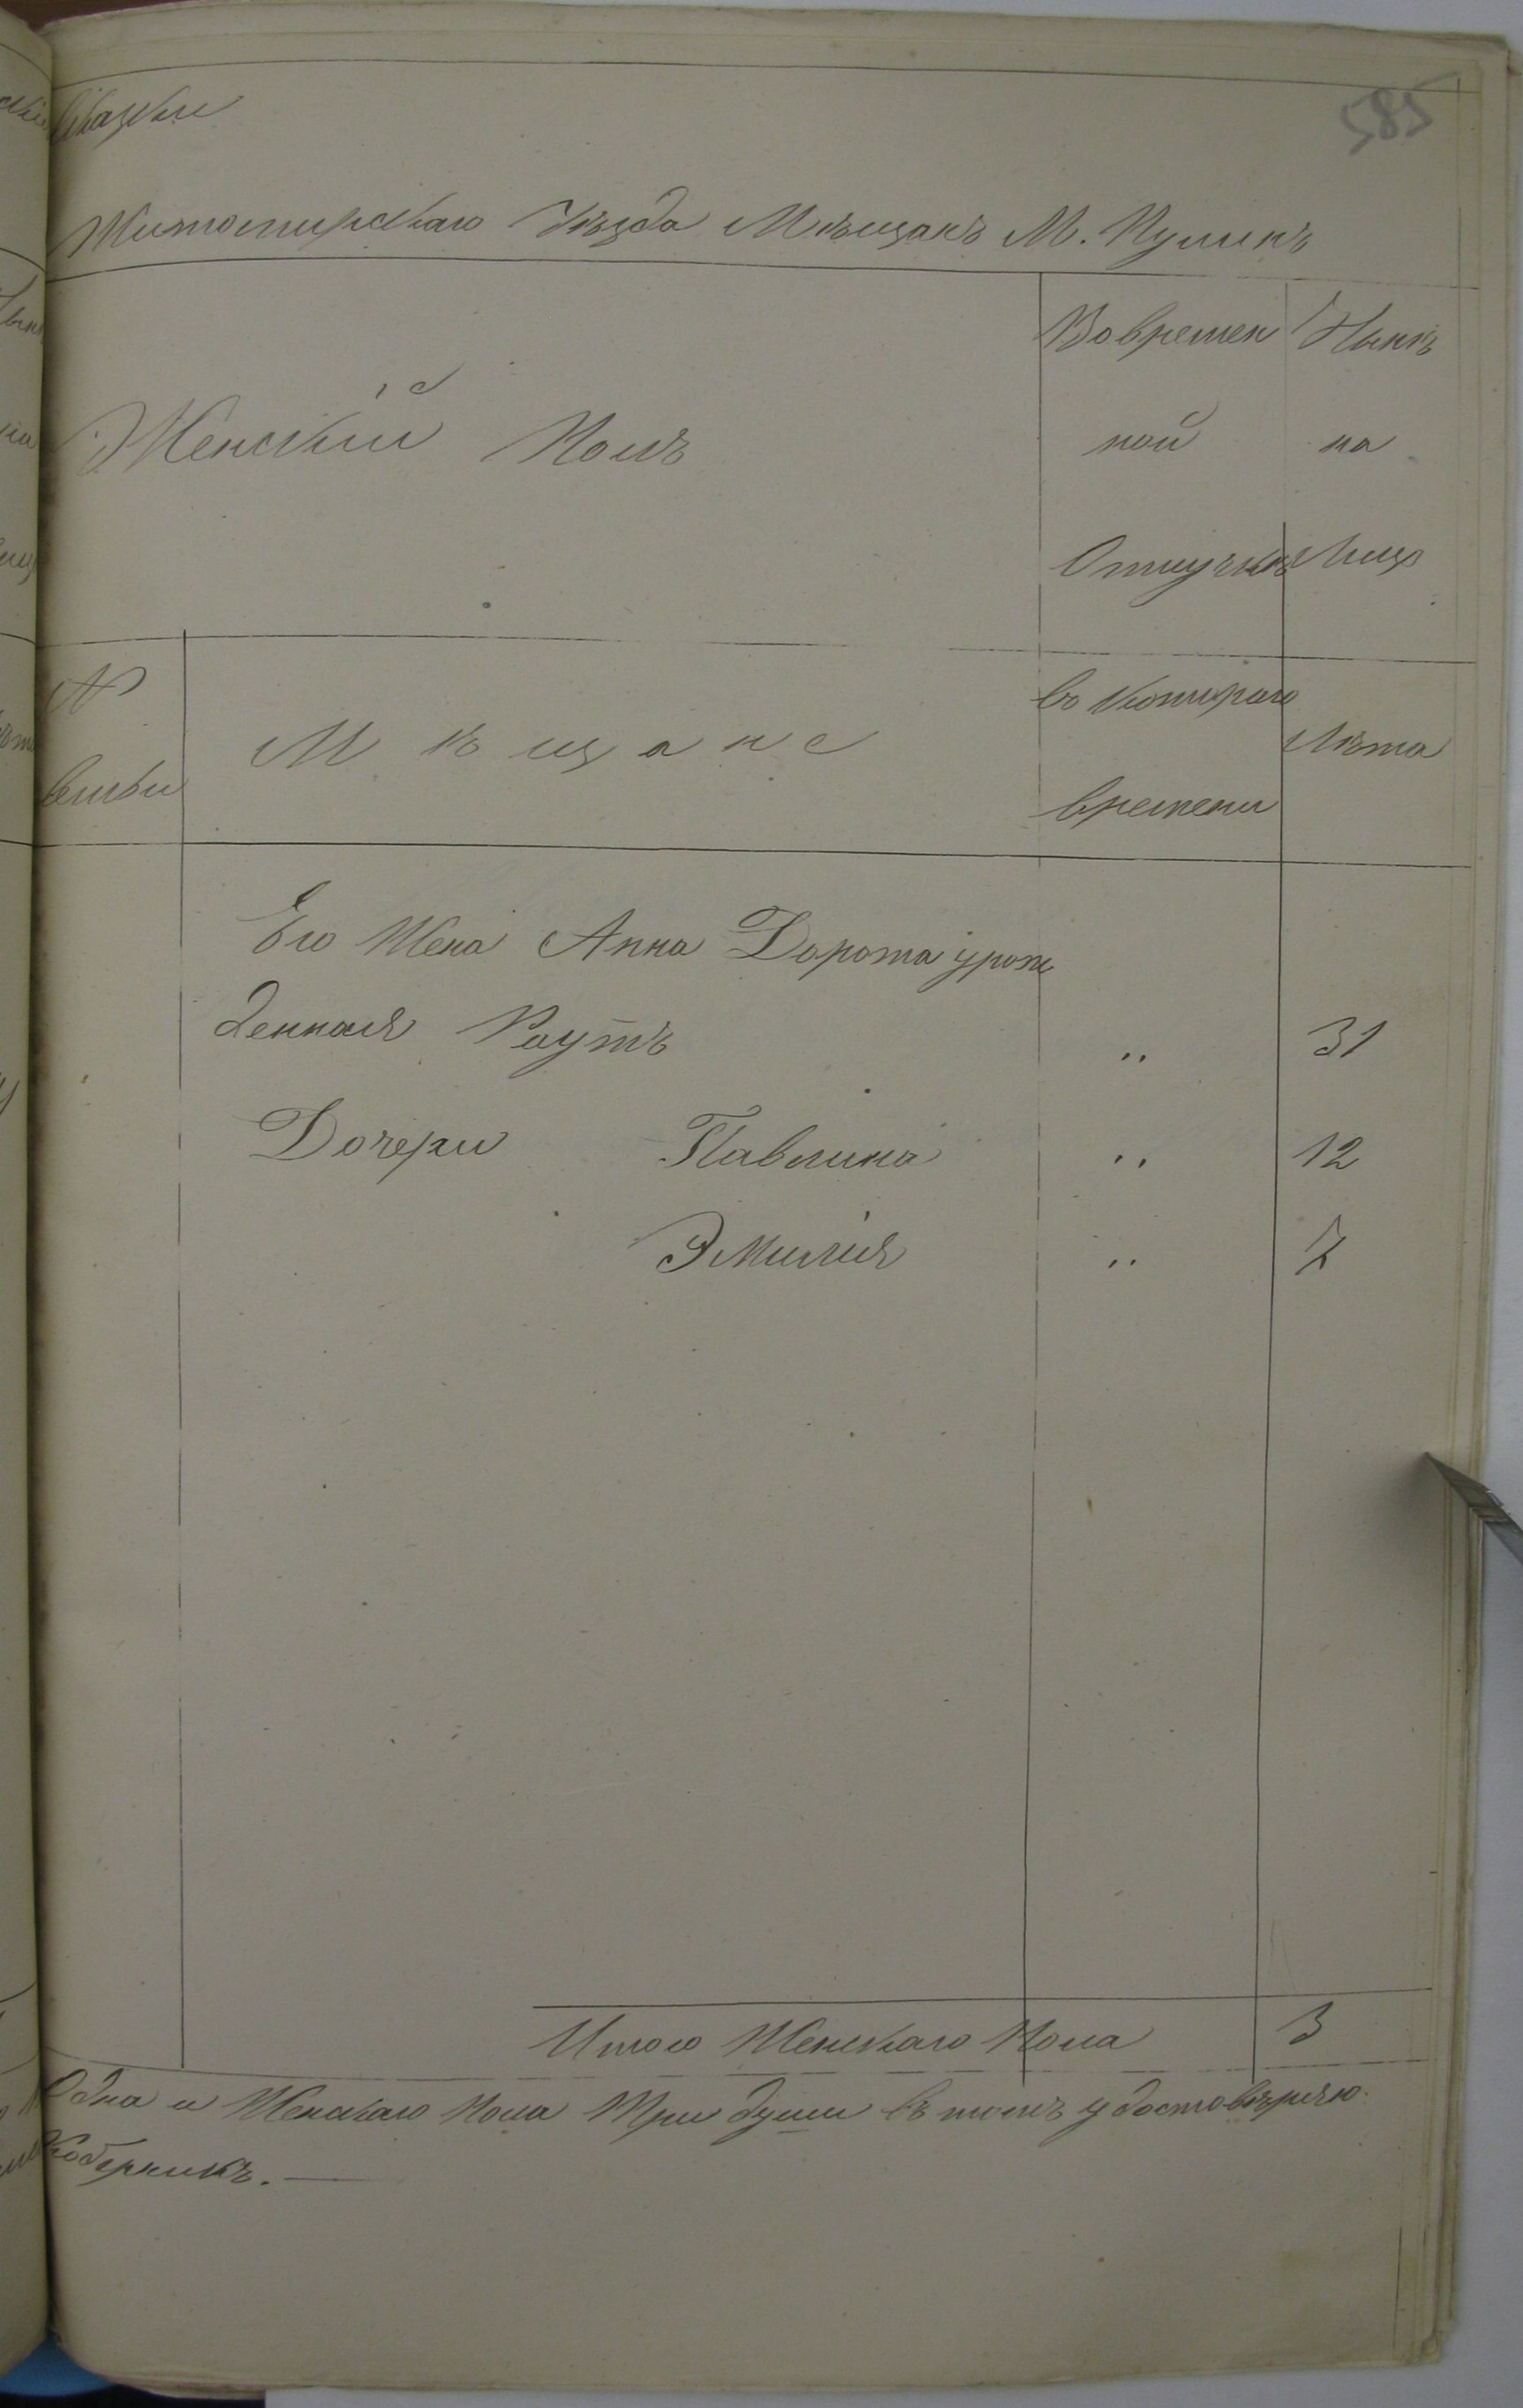 585
сказки
Житомирскаго Уѣзда Мѣщанъ М. Пулинъ
Женскій Полъ
Во времен
ной
Отлучкѣ
Нынѣ
на
Лицо
№
семьи
Мѣщане
съ котораго
времени
Лѣта
Его Жена Анна Дорота урож
денная Раутъ " 31
Дочери Павлина " 12
Эмилія " 7
Итого Женскаго Пола 3
Одна и Женскаго пола Три души въ томъ удостовѣряю